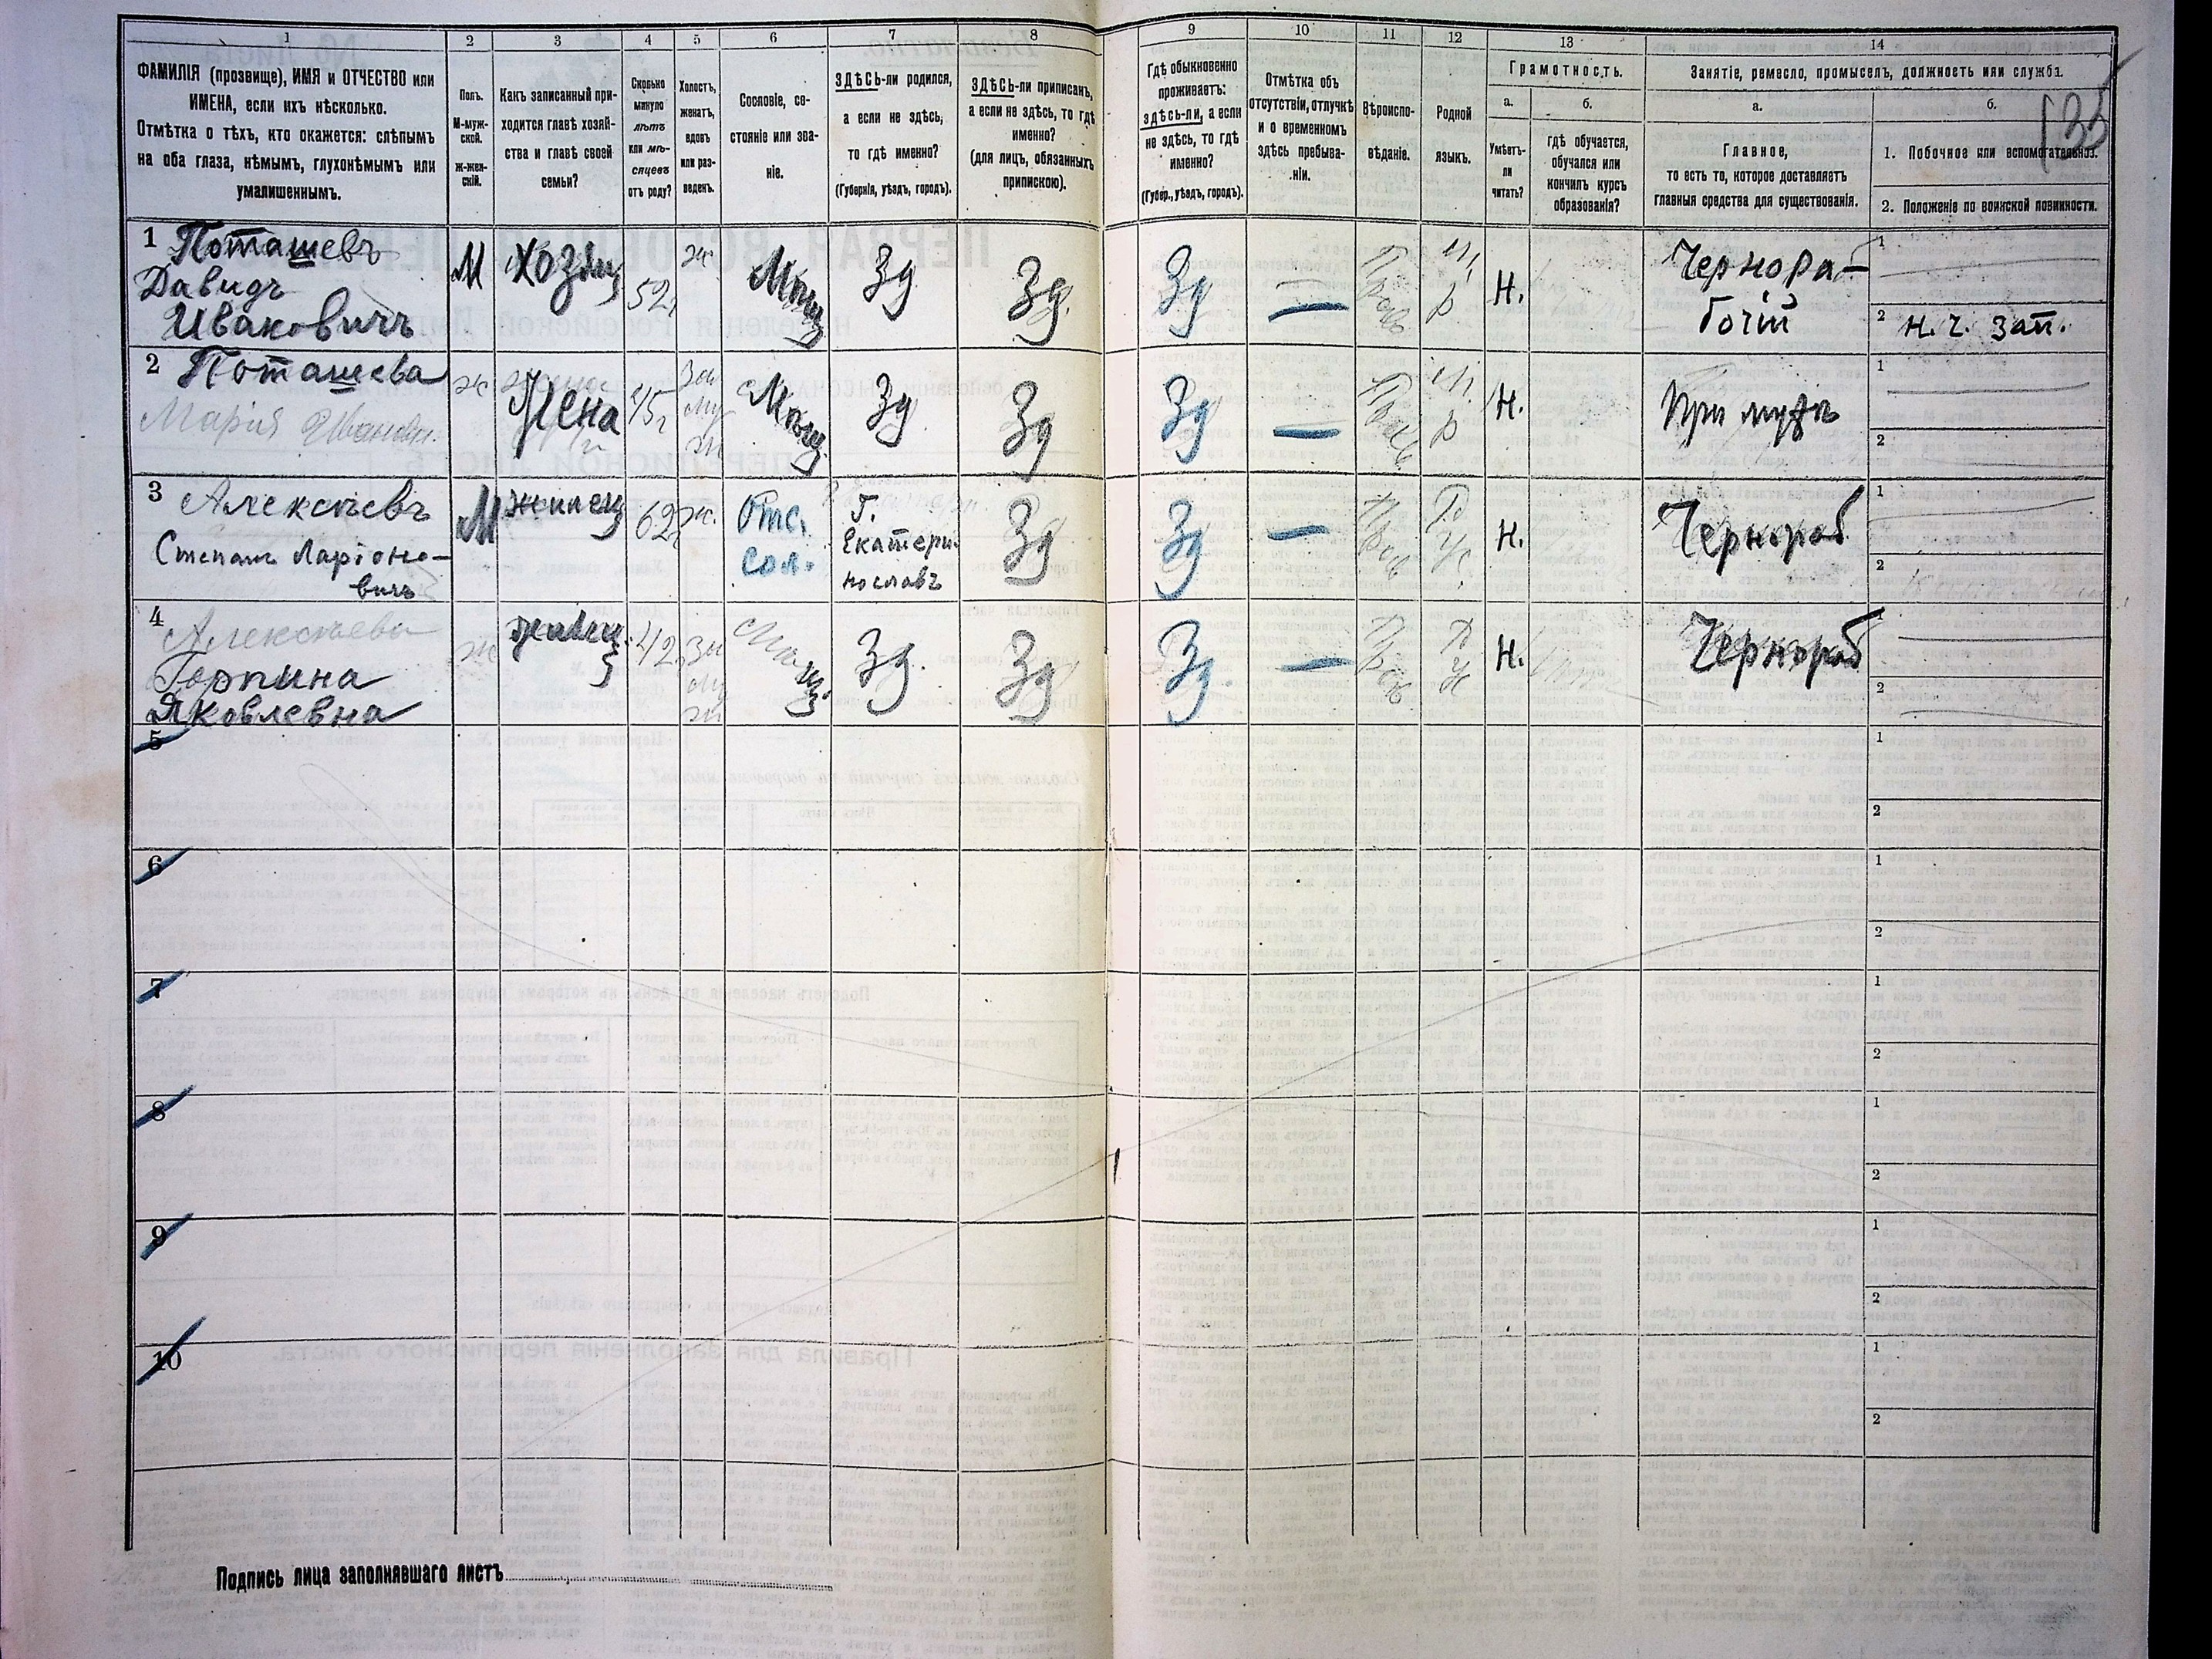 1 2 3 4 5 6 7 8 9 10 11 12 13 14
ФАМИЛІЯ (прозвище), ИМЯ и ОТЧЕСТВО или
ИМЕНА, если ихъ нѣсколько.
Отмѣтка о тѣхъ, кто окажется: слѣпымъ
на оба глаза, нѣмымъ, глухонѣмымъ или
умалишеннымъ.
Полъ.
М-муж-
ской.
Ж-жен-
скій.
Какъ записанный при-
ходится главѣ хозяй-
ства и главѣ своей
семьи?
Сколько
минуло
лѣтъ
или мѣ-
сяцевъ
отъ роду?
Холостъ,
женатъ,
вдовъ
или раз-
веденъ.
Сословіе, со-
стояніе или зва-
ніе.
ЗДѢСЬ-ли родился,
а если не здѣсь,
то гдѣ именно?
(Губернія, уѣздъ, городъ).
ЗДѢСЬ-ли приписанъ,
а если не здѣсь, то гдѣ
именно?
(для лицъ, обязанныхъ
припискою).
Гдѣ обыкновенно
проживаетъ:
здѣсь-ли, а если
не здѣсь, то гдѣ
именно?
(Губер., уѣздъ, городъ).
Отмѣтка объ
отсутствіи, отлучкѣ
и о временномъ
здѣсь пребыва-
ніи.
Вѣроиспо-
вѣданіе.
Родной
языкъ.
Грамотность.
а. б.
Умѣетъ-
ли
читать?
гдѣ обучается,
обучался или
кончилъ курсъ
образованія?
Занятіе, ремесло, промыселъ, должность или служба.
а.
Главное,
то есть то, которое доставляетъ
главныя средства для существованія.
б.
1. Побочное или вспомогательное.
2. Положеніе по воинской повинности.
135
1 Поташевъ
Давидъ
Иваковичъ
М Хозяи 52 ж Мѣщ Зд Зд. Зд — Н.
Чернора-
бочій
1
2 н. ч. зап.
2 Поташева
Марія Иванов.
ж Жена 45 Мѣщ Зд Зд Зд — Н. При мужѣ
1
2
3 Алексѣевъ
Степанъ Ларіоно-
вичъ
М жилец 62 ж.
Отс.
Сол.
Г.
Екатери-
нославъ
Зд Зд — Н. Чернораб
1
2
4 Алексѣева
Горпина
Яковлевна
ж 42 Мѣщ. Зд. Зд Зд. — Н. Чернораб
1
2
5
1
2
6
1
2
7
1
2
8
1
2
9
1
2
10
1
2
Подпись лица заполнявшаго листъ